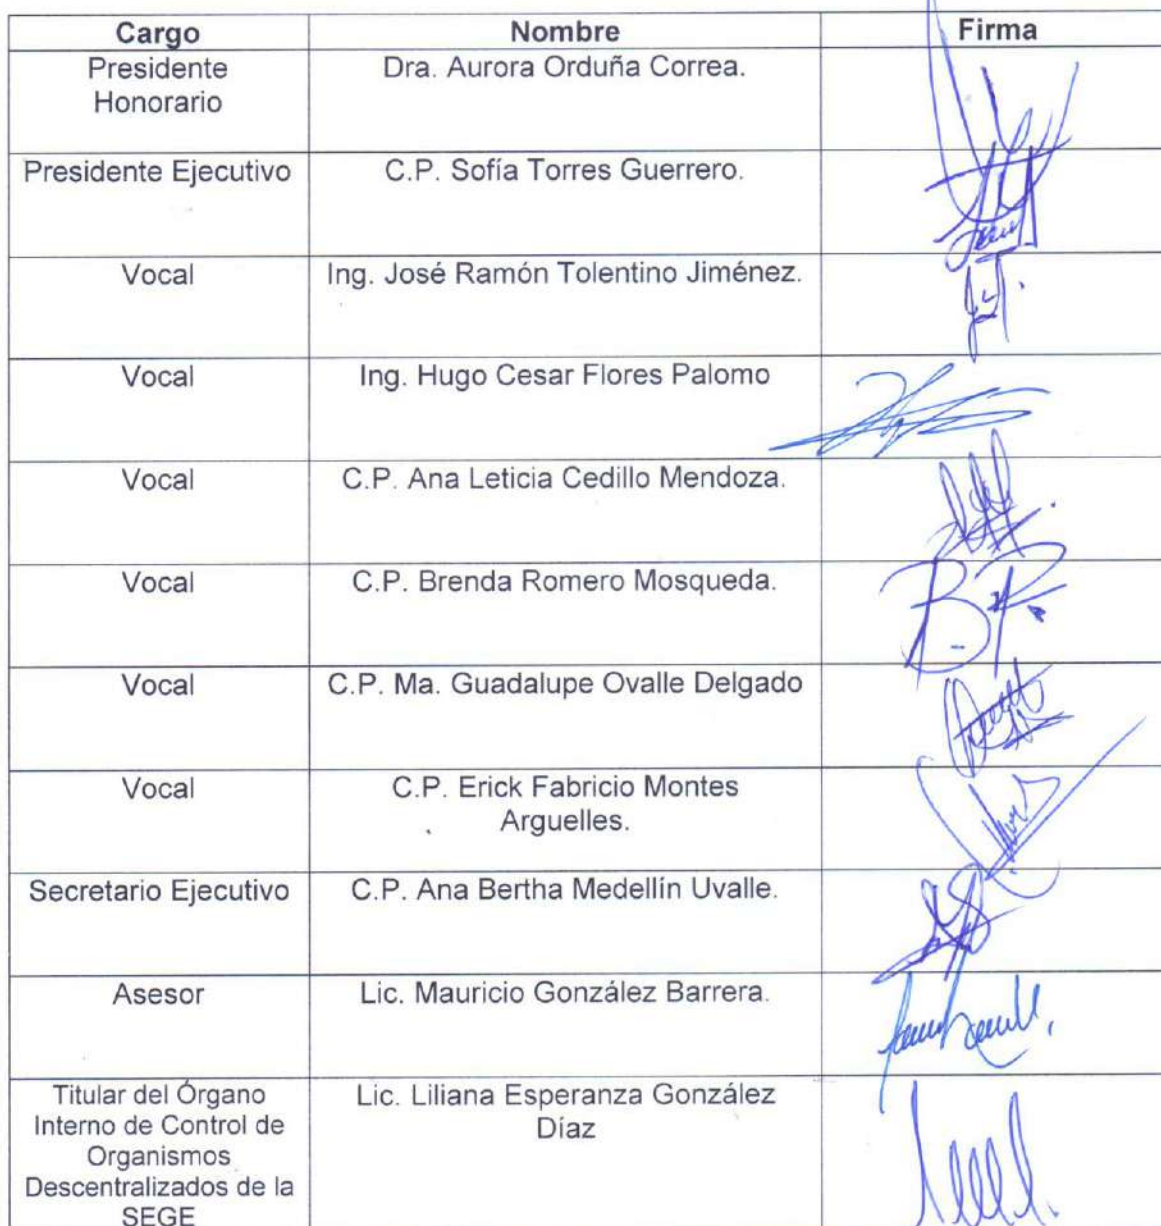 Cargo Nombre Firma
Presidente Dra. Aurora Orduña Correa.
Honorario
Presidente Ejecutivo C.P. Sofía Torres Guerrero.
Vocal Ing. José Ramón Tolentino Jiménez.
Vocal Ing. Hugo Cesar Flores Palomo
Vocal C.P. Ana Leticia Cedillo Mendoza.
Vocal C.P. Brenda Romero Mosqueda.
Vocal C.P. Ma. Guadalupe Ovalle Delgado
Vocal C.P. Erick Fabricio Montes
Arguelles.
Secretario Ejecutivo C.P. Ana Bertha Medellín Uvalle.
Asesor Lic. Mauricio González Barrera.
Titular del Órgano Lic. Liliana Esperanza González
Interno de Control de Díaz
Organismos
Descentralizados de la
SEGE